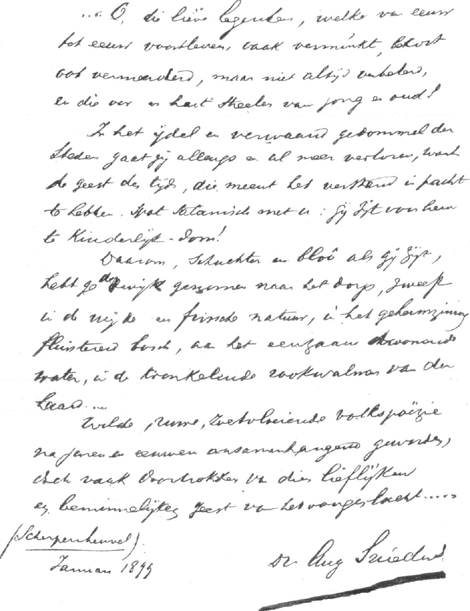 ... O, die lieve legenden, welke van eeuw
tot eeuw voortleven, vaak verminkt,
ook vermeerderd, maar niet altijd verbeterd,
en die oor en hart steelen van jong en oud!
In het ijdel en verwaand gebommel der
steden gaat gij allengs en al meer verloren, want
de geest des tijds, die meent het verstand in pacht
te hebben, spot satanisch met u: Gij zijt voor hem
te kinderlijk-dom!
Daarom, schuchter en bloô als gij zijt,
hebt ge de wijk genomen naar het dorp, zweeft
in de vrije en frissche natuur, in het geheimzinnig
fluisterend bosch, aan het eenzaam droomende
water, in de kronkelende rookwalmen van den
haard...
Wilde, ruwe, zoetvloeiende volkspoëzie
na jaren en eeuwen onsamenhangend geworden,
doch vaak doortrokken van dien lieflijken
en beminnelijken geest van het voorgeslacht.....
(Scherpenheuvel).
Januari 1899
Dr Aug Snieders